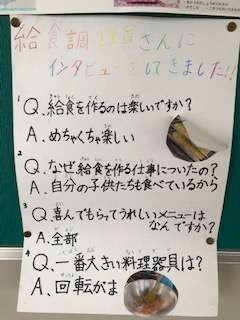 給食調理員さんに
インタビューをしてきました!!
1 Q.給食を作るのは楽しいですか?
A.めちゃくちゃ楽しい
2 Q.なぜ給食を作る仕事についたの?
A.自分の子供たちも食べているから
3 Q.喜んでもらってうれしいメニューは
なんですか?
A.全部
4 Q.一番大きい料理器具は?
A.回転がま